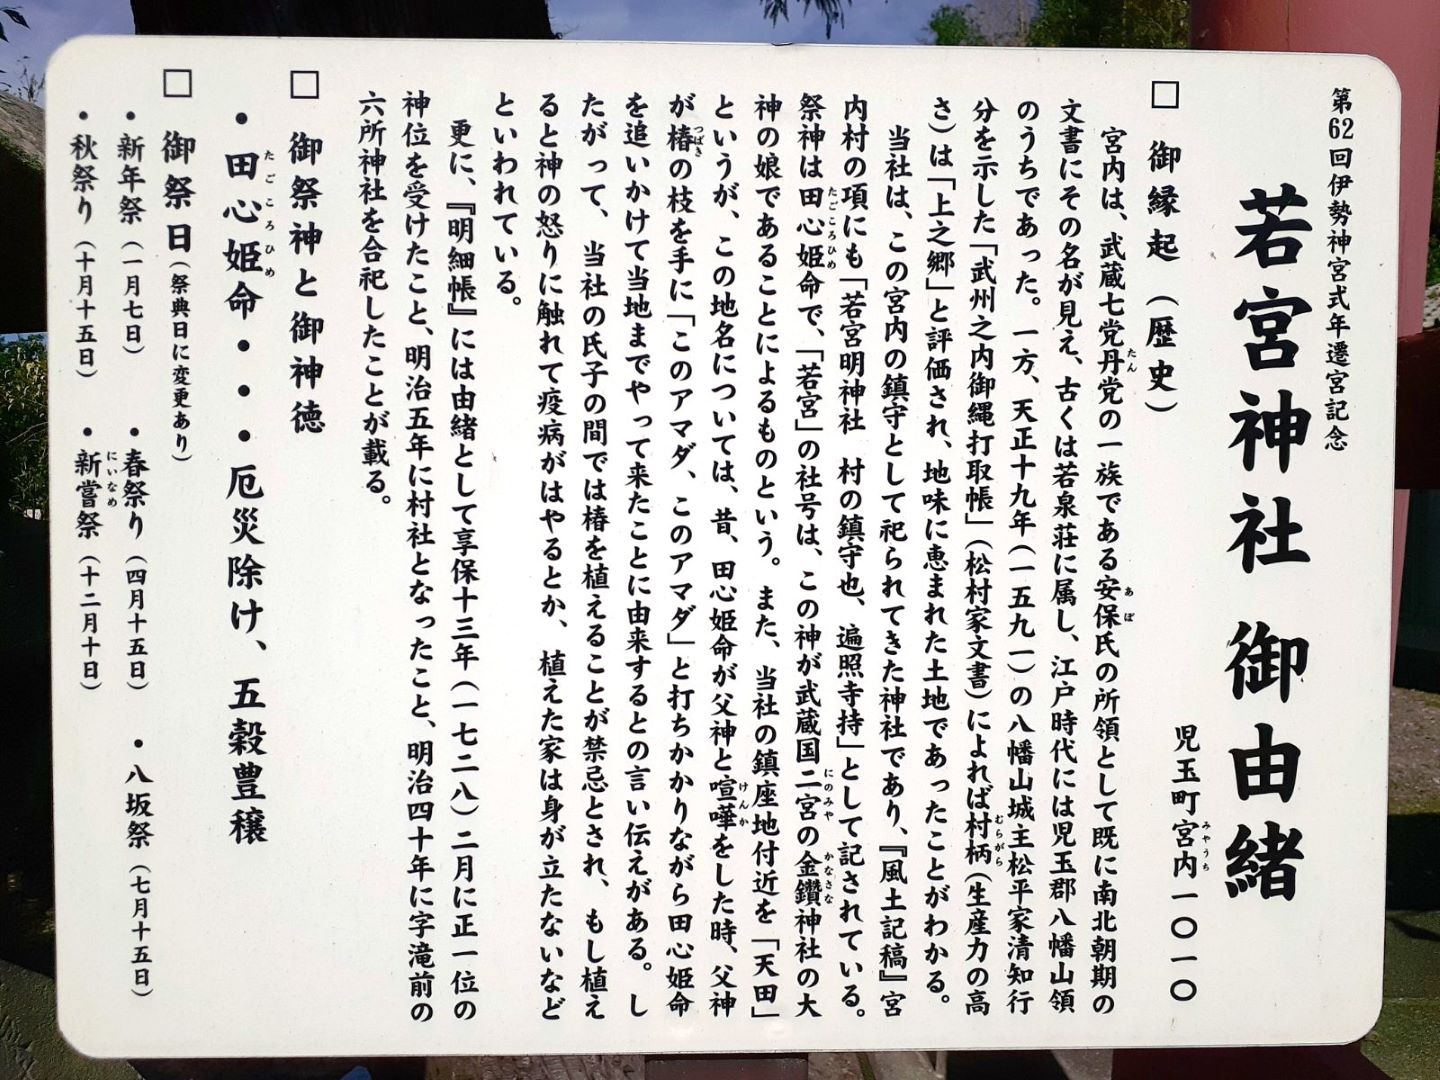 第62回伊勢神宮式年遷宮記念
若宮神社 御由緒
児玉町宮内一〇一〇
みやうち
□ 御縁起（歴史）
宮内は、武蔵七党丹党の一族である安保氏の所領として既に南北朝期の
たん
あぼ
文書にその名が見え、古くは若泉荘に属し、江戸時代には児玉郡八幡山領
のうちであった。一方、天正十九年（一五九一）の八幡山城主松平家清知行
分を示した「武州之内御縄打取帳」（松村家文書）によれば村柄（生産力の高
むらがら
さ）は「上之郷」と評価され、地味に恵まれた土地であったことがわかる。
当社は、この宮内の鎮守として祀られてきた神社であり、『風土記稿』宮
内村の項にも「若宮明神社 村の鎮守也、遍照寺持」として記されている。
祭神は田心姫命で、「若宮」の社号は、この神が武蔵国二宮の金鑚神社の大
たごころひめ
にのみや
かなさな
神の娘であることによるものという。また、当社の鎮座地付近を「天田」
というが、この地名については、昔、田心姫命が父神と喧嘩をした時、父神
けんか
が椿の枝を手に「このアマダ、このアマダ」と打ちかかりながら田心姫命
つばき
を追いかけて当地までやって来たことに由来するとの言い伝えがある。し
たがって、当社の氏子の間では椿を植えることが禁忌とされ、もし植え
ると神の怒りに触れて疫病がはやるとか、植えた家は身が立たないなど
といわれている。
更に、『明細帳』には由緒として享保十三年（一七二八）二月に正一位の
神位を受けたこと、明治五年に村社となったこと、明治四十年に字滝前の
六所神社を合祀したことが載る。
□ 御祭神と御神徳
・田心姫命・・・厄災除け、五穀豊穣
たごころひめ
□ 御祭日（祭典日に変更あり）
・新年祭（一月七日） ・春祭り（四月十五日） ・八坂祭（七月十五日）
・秋祭り（十月十五日） ・新嘗祭（十二月十日）
にいなめ